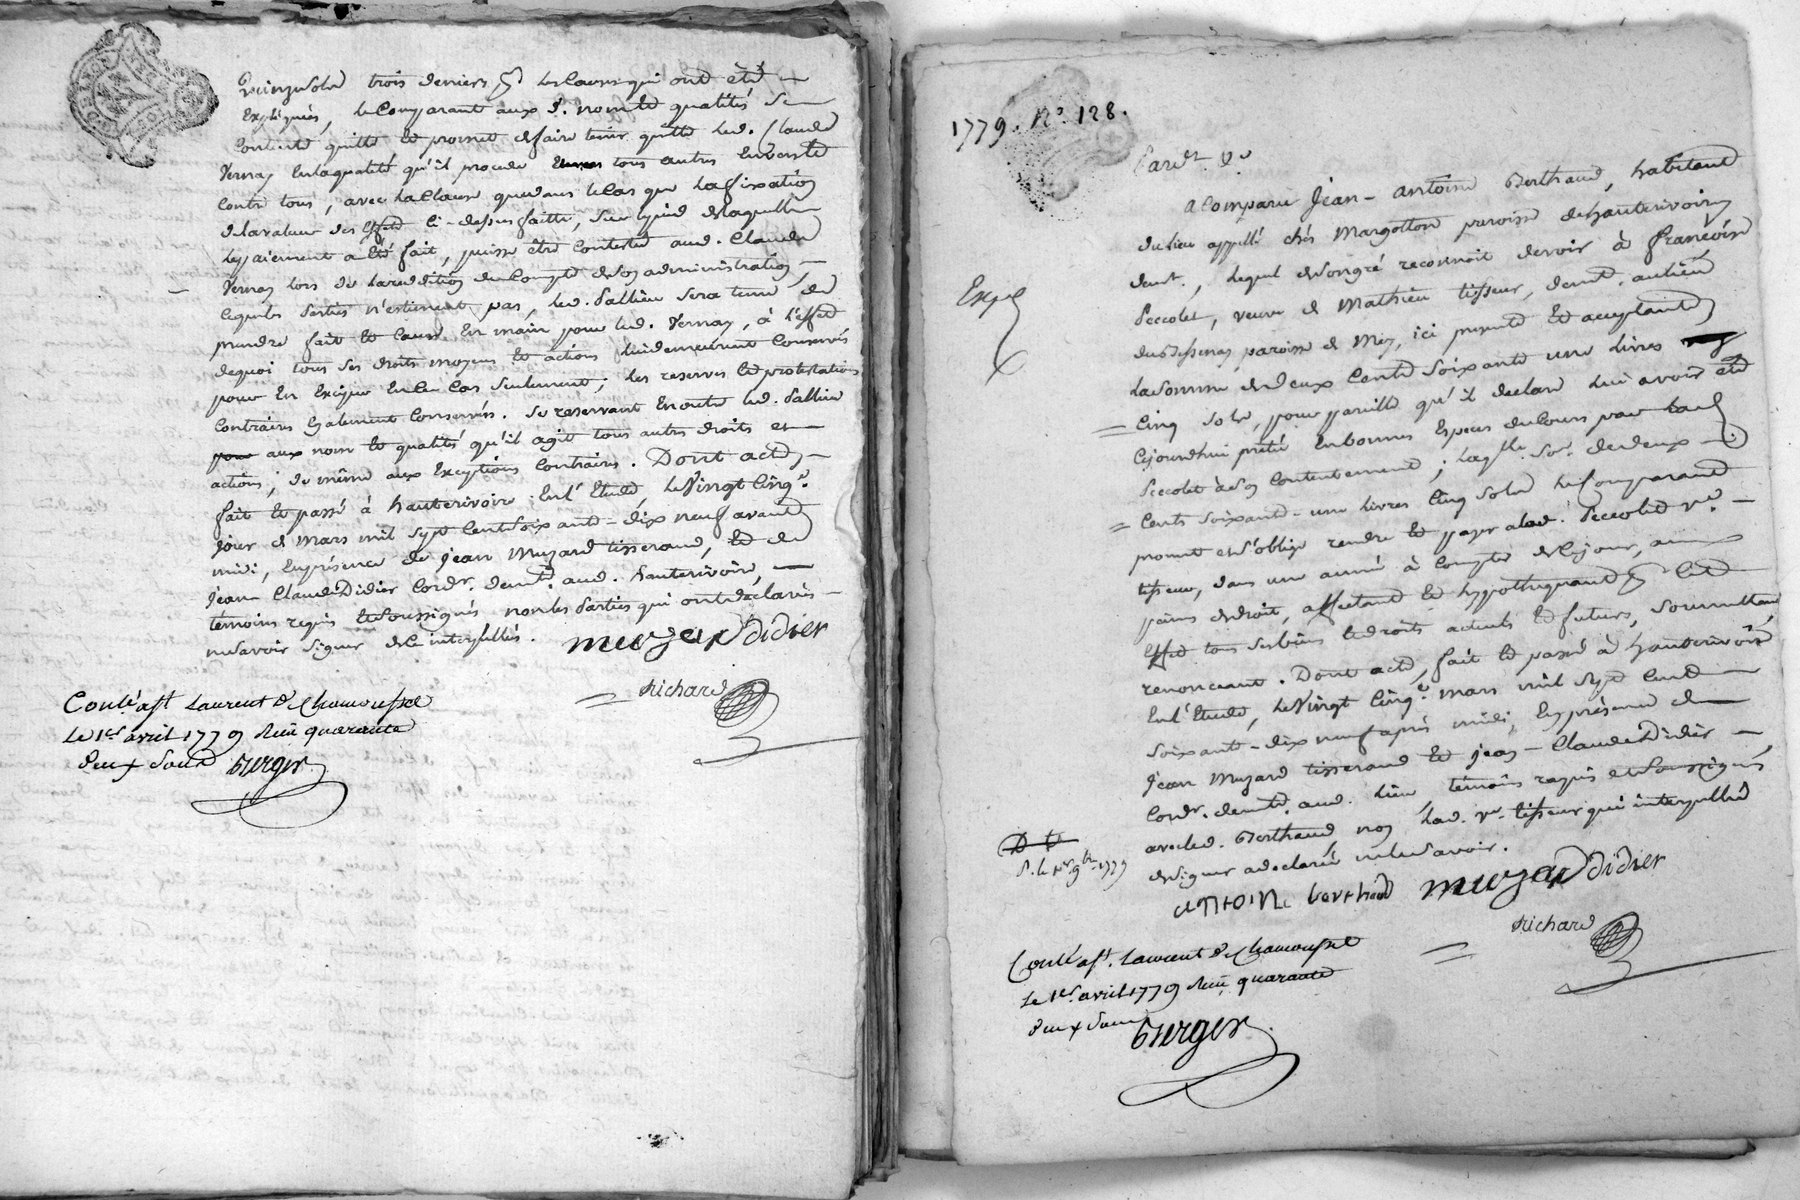 trois deniers les causes qui ont été
expliquées, le comparant aux d. nom et qualités se
contente quitte et promet de faire tenir quitte led. Claude
Vernay en la qualité qu'il procede tous autres
contre tous, avec la clause que dans le cas que la fixation
de la valeur des effets ci-dessus faitte, sur le pied de laquelle
le paiement a été fait, puisse être contestée aud. Claude
Vernay lors de la reddition du compte de son administration,
ce que les parties n'estiment pas, led. Pallieu sera tenu de
prendre fait et cause en main pour led. Vernay, à l'effet
de quoi tous ses droits moyens et actions lui demeurent conservés
pour en exciper en ce cas seulement; les reserves et protestations
contraires egalement conservées. Se reservant en outre led. Pallieu
aux nom et qualités qu'il agit tous autres droits et
actions, de même aux exceptions contraires. Dont acte,
fait et passé à hauterivoire, en l'Etude, le vingt cinq.e
jour de mars mil sept cent soixante-dix neuf avant
midi, en présence de Jean Muzard tisserand, et de
Jean Claude Didier cord.r demt. aud. hauterivoire,
témoins requis et soussignés non les parties qui ont déclarés
ne savoir signer de ce interpellés.
muzard didier
Richard
Conlé. a St Laurent de Chamousset
Le 1er. avril 1779 Reçu quarante
deux sous Burger
1779. N.o 128.
Pardt. v.e
a comparu Jean-antoine Berthaud, habitant
du lieu appellé chés Margotton paroisse de hauterivoire
demt., lequel de son gré reconnoit devoir à françoise
Peccolet, veuve de Mathieu tisseur, demt. au lieu
du paroisse de Mey, ici presente et acceptante
Exp.é
la somme de deux cents soixante une livres
cinq sols, pour pareille qu'il declare lui avoir été
cejourdhui pretée en bonnes especes du cours par lad.
Peccolet à son contentement; laq.lle somme de deux
cents soixante-une livres cinq sols le comparant
promet et s'oblige rendre et payer alad. Peccolet v.e
tisseur, dans une année à compter de ce jour, aux
peines de droit, affectant et hypothequant à cet
effet tous ses biens et droits actuels et futurs, soumettant,
renonceant. Dont acte, fait et passé à hauterivoire
en l'Etude, le vingt cinq.e mars mil sept cent
soixante-dix neuf après midi, en présence de
Jean Muzard tisserand et Jean-Claude Didier
cord.r demts. aud. lieu témoins requis et soussignés
avec led. Berthaud, non lad. v.e tisseur qui interpellée
de signer a declaré ne le savoir.
D D
P. le 1er 9bre 1779
antoine berthaud muzard didier
Richard
Conlé a St. Laurent de Chamousset
Le 1er. avril 1779 Reçu quarante
deux sous Burger